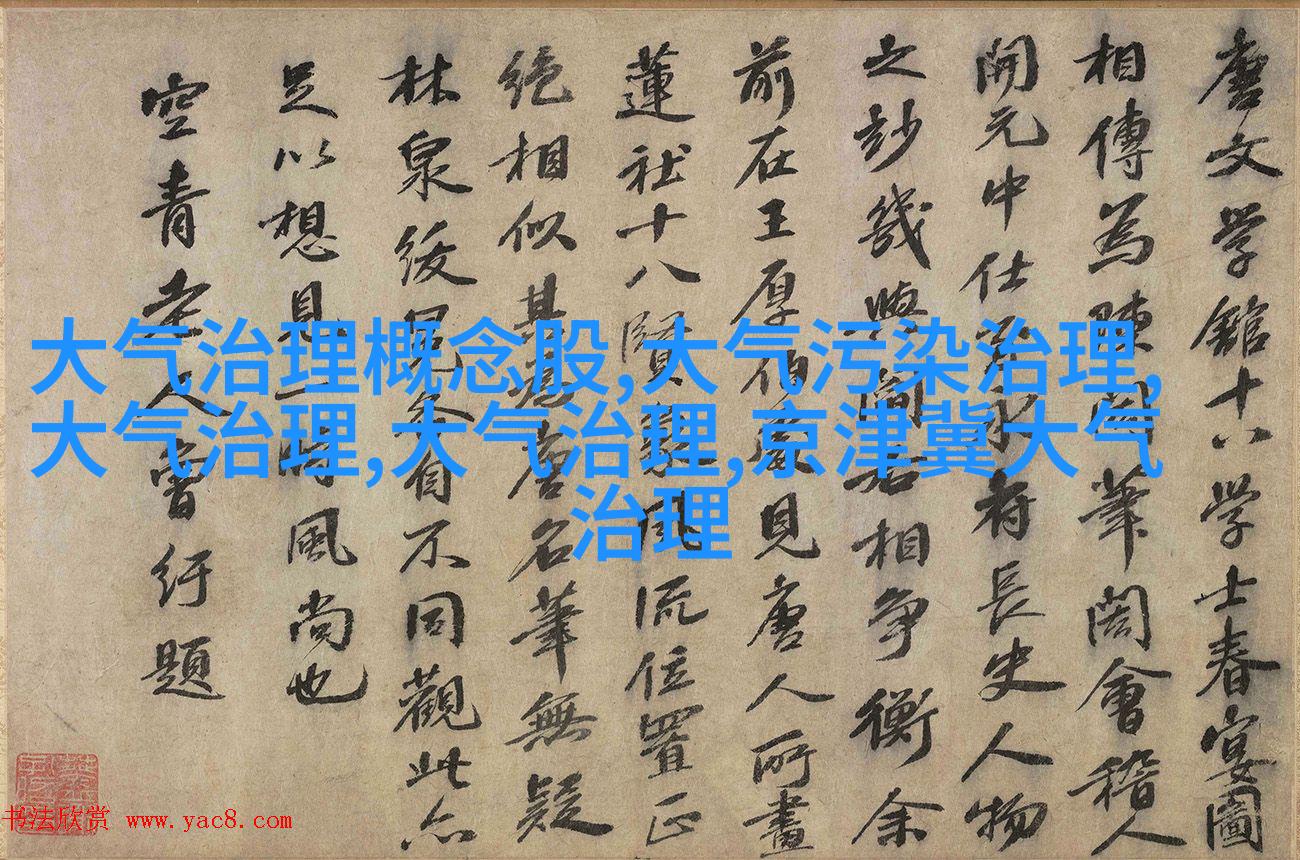 唐文学館十八学士春宴圖
相傳為陳閎筆閎會稽人
開元中仕永府長史人物
之妙幾與閻相爭衡余
前在王厚伯家見唐人所畫
蓮社十八賢風流位置正
絕相似其為唐名筆無疑
林泉自不同觀此亦
足以想見一時風尚也
空青老人曾紆題
大气治理概念股,大气污染治理,
大气治理,大气治理,京津冀大气
治理
书法欣赏 www.yac8.com